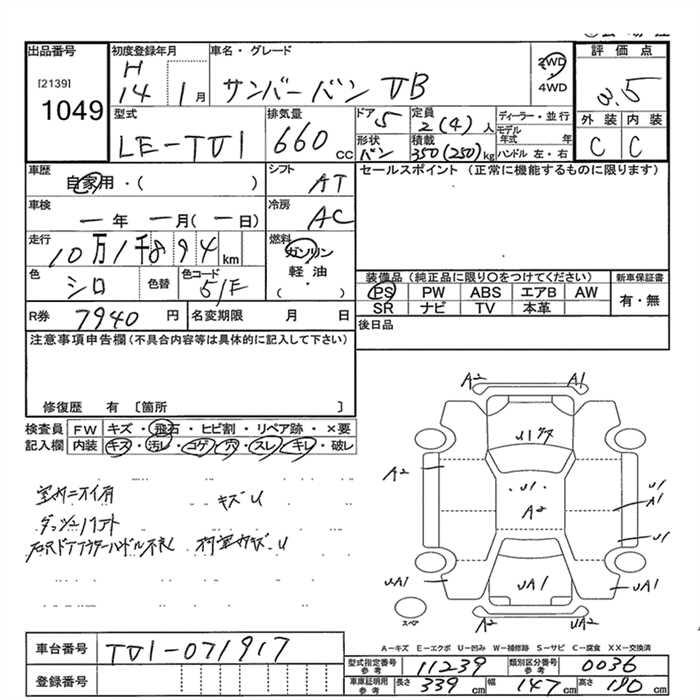 出品番号
[2139]
1049
初度登録年月
H
14 1月
車名・グレード
サンバーバン VB
2WD
・
4WD
評価点
3.5
型式
LE-TV1
排気量
660 CC
ドア 5
形状 バン
定員 2(4)人
積載 350(250)kg
ディーラー・並行
モデル年式 年
ハンドル 左・右
外装 内装
C C
車歴
自家用・( )
シフト
AT
セールスポイント(正常に機能するものに限ります)
車検
ー年ー月(ー日)
冷房
AC
走行
10万1千894km
燃料
ガソリン
軽油・
( )
色
シロ
色替
色コード
51F
装備品(純正品に限り○をつけてください)
PS PW ABS エアB AW
SR ナビ TV 本革
新車保証書
有・無
R券 7940円
名変期限 月 日
後日品
注意事項申告欄(不具合内容等は具体的に記入して下さい)
修復歴 有 [箇所 ]
検査員記入欄
FW キズ・飛石・ヒビ割・リペア跡・×要
内装 キズ・汚レ・コゲ・穴・スレ・キレ・破レ
室内ニオイ有 キズU
ダッシュ
A2 A1
U1
A2
U1
A2
U1
A1
U1
UA1
UA1
UA1
スペア
A2 UA2
A-キズ E-エクボ U-凹み W-補修跡 S-サビ C-腐食 XX-交換済
車台番号 TV1-071917
登録番号
型式指定番号 参考 11239
類別区分番号 参考 0036
車庫証明用 参考 長さ 339cm 幅 147cm 高さ 190cm